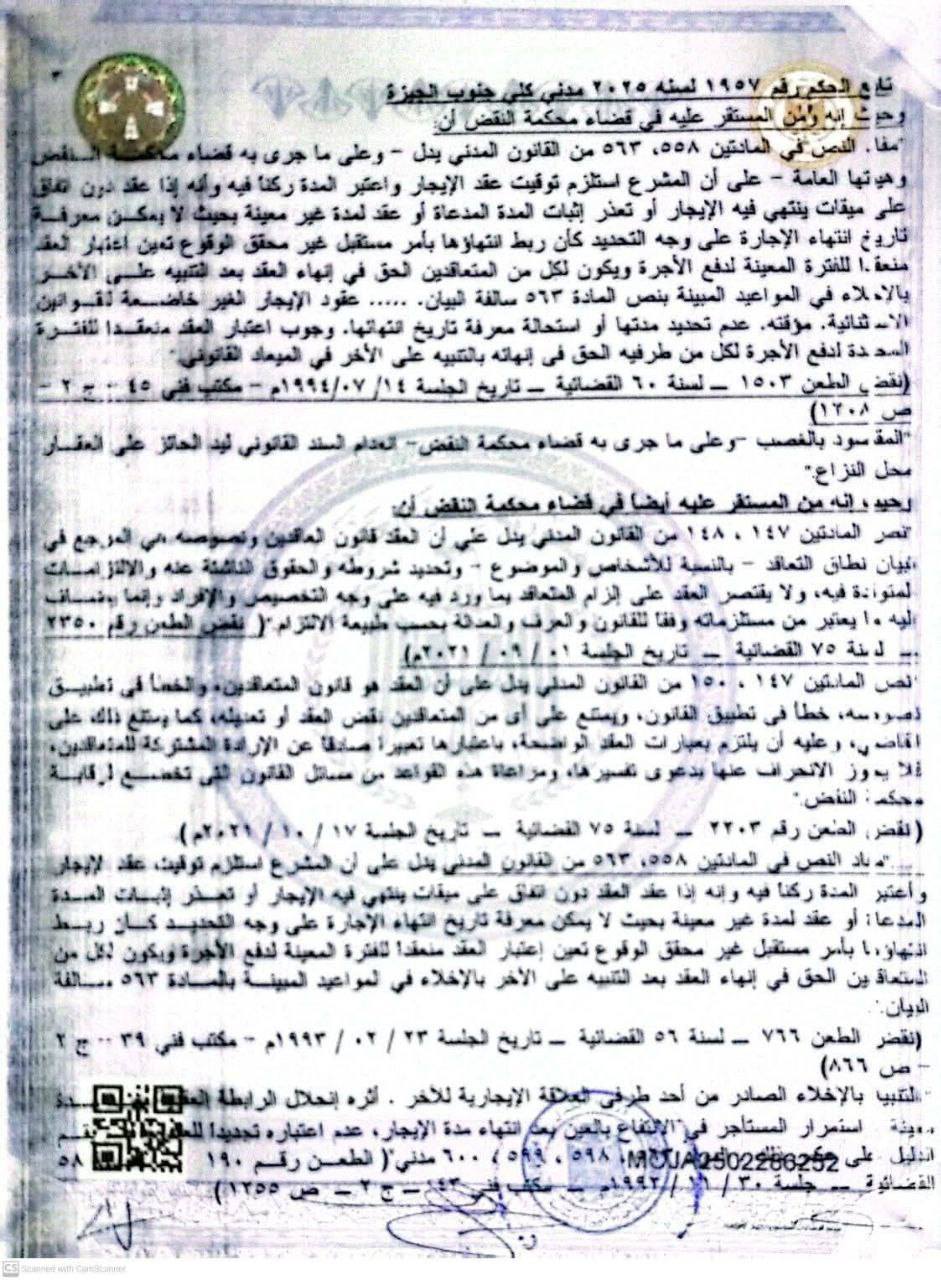 ٣
تابع الحكم رقم ١٩٥٧ لسنه ٢٠٢٥ مدني كلي جنوب الجيزة
وحيث إنه ومن المستقر عليه في قضاء محكمة النقض أن:
"مفا. النص في المادتين ٥٥٨، ٥٦٣ من القانون المدني يدل – وعلى ما جرى به قضاء محكمة النقض
وهيئتها العامة – على أن المشرع استلزم توقيت عقد الإيجار واعتبر المدة ركناً فيه وأنه إذا عقد دون اتفاق
على ميقات ينتهي فيه الإيجار أو تعذر إثبات المدة المدعاة أو عقد لمدة غير معينة بحيث لا يمكن معرفة
تاريخ انتهاء الإجارة على وجه التحديد كأن ربط انتهاؤها بأمر مستقبل غير محقق الوقوع تعين اعتبار العقد
منعقدا للفترة المعينة لدفع الأجرة ويكون لكل من المتعاقدين الحق في إنهاء العقد بعد التنبيه على الآخر
بالإخلاء في المواعيد المبينة بنص المادة ٥٦٣ سالفة البيان. ..... عقود الإيجار الغير خاضعة لقوانين
الاستثنائية. مؤقته. عدم تحديد مدتها أو استحالة معرفة تاريخ انتهائها. وجوب اعتبار العقد منعقدا للفترة
المحددة لدفع الأجرة لكل من طرفيه الحق في إنهائه بالتنبيه على الأخر في الميعاد القانوني."
(نقض الطعن ١٥٠٣ – لسنة ٦٠ القضائية – تاريخ الجلسة ١٤/ ٠٧/ ١٩٩٤م – مكتب فني ٤٥ – ج ٢ –
ص ١٢٠٨)
"المقصود بالغصب –وعلى ما جرى به قضاء محكمة النقض– انعدام السند القانوني ليد الحائز على العقار
محل النزاع."
وحيث إنه من المستقر عليه أيضاً في قضاء محكمة النقض أن:
"نص المادتين ١٤٧ ، ١٤٨ من القانون المدني يدل علي أن العقد قانون العاقدين ونصوصه هي المرجع في
بيان نطاق التعاقد – بالنسبة للأشخاص والموضوع – وتحديد شروطه والحقوق الناشئة عنه والالتزامات
المتولدة فيه، ولا يقتصر العقد على إلزام المتعاقد بما ورد فيه على وجه التخصيص والإفراد وإنما يضاف
إليه ما يعتبر من مستلزماته وفقاً للقانون والعرف والعدالة بحسب طبيعة الالتزام."( نقض الطعن رقم ٢٣٥٠
– لسنة ٧٥ القضائية – تاريخ الجلسة ٠١ / ٠٦ / ٢٠٢١م)
"نص المادتين ١٤٧ ، ١٥٠ من القانون المدني يدل على أن العقد هو قانون المتعاقدين، والخطأ في تطبيق
نصوصه، خطأ في تطبيق القانون، ويمتنع على أى من المتعاقدين نقض العقد أو تعديله، كما يمتنع ذلك على
القاضي، وعليه أن يلتزم بعبارات العقد الواضحة، باعتبارها تعبيراً صادقاً عن الإرادة المشتركة للمتعاقدين،
فلا يجوز الانحراف عنها بدعوى تفسيرها، ومراعاة هذه القواعد من مسائل القانون التى تخضع لرقابة
محكمة النقض."
(نقض الطعن رقم ٢٢٠٣ – لسنة ٧٥ القضائية – تاريخ الجلسة ١٧ / ١٠ / ٢٠٢١م).
..."مفاد النص في المادتين ٥٥٨، ٥٦٣ من القانون المدني يدل على أن المشرع استلزم توقيت عقد الإيجار
وأعتبر المدة ركناً فيه وإنه إذا عقد العقد دون اتفاق على ميقات ينتهي فيه الإيجار أو تعذر إثبات المدة
المدعاة أو عقد لمدة غير معينة بحيث لا يمكن معرفة تاريخ انتهاء الإجارة على وجه التحديد كأن ربط
انتهاؤها بأمر مستقبل غير محقق الوقوع تعين إعتبار العقد منعقداً للفترة المعينة لدفع الأجرة ويكون لكل من
المتعاقدين الحق في إنهاء العقد بعد التنبيه على الأخر بالإخلاء في لمواعيد المبينة بالمادة ٥٦٣ سالفة
البيان."
(نقض الطعن ٧٦٦ – لسنة ٥٦ القضائية – تاريخ الجلسة ٢٣ / ٠٢ / ١٩٩٣م – مكتب فني ٣٩ – ج ٢
– ص ٨٦٦)
"التنبيا بالإخلاء الصادر من أحد طرفى العلاقة الإيجارية للأخر . أثره إنحلال الرابطة
معينة . استمرار المستأجر في الانتفاع بالعين بعد انتهاء مدة الإيجار، عدم اعتباره تجديدا
الدليل على ٥٩٨ ، ٥٩٩ ، ٦٠٠ مدني"( الطعن رقم ١٩٠ ٥٨
القضائية – جلسة ٣٠ / ١١ / ١٩٩٢م – مكتب فني ٤٣ – ج ٢ – ص ١٢٥٥)
MOJA2502286252
CS Scanned with CamScanner